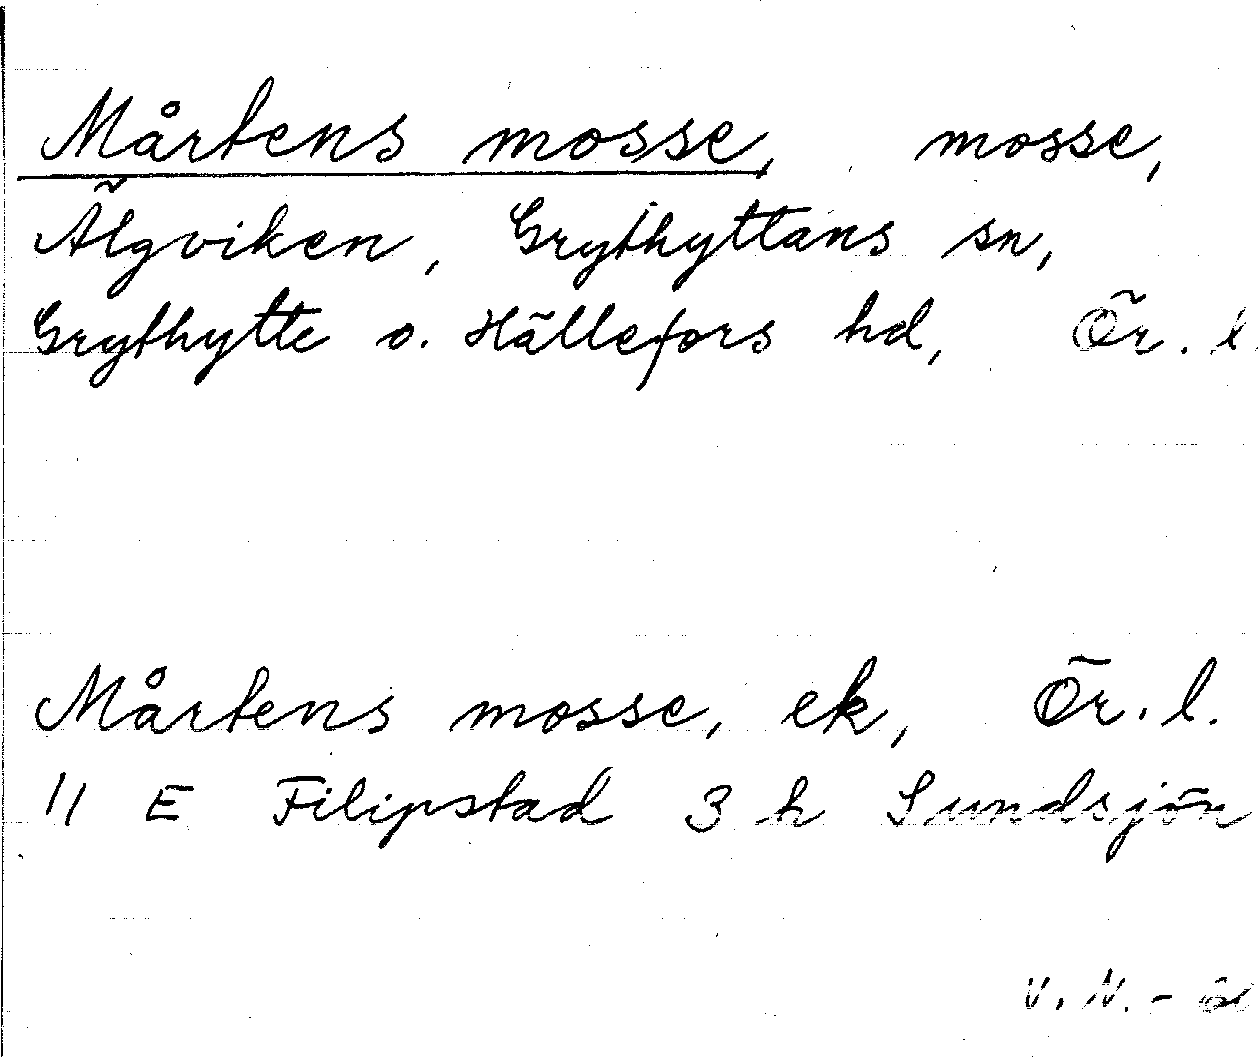 Mårtens mosse, mosse,
Älgviken, Grythyttans sn,
Grythytte o. Hällefors hd, Ör. l.
Mårtens mosse, ek, Ör. l.
11 E Filipstad 3 h Sundsjön
V. N. -